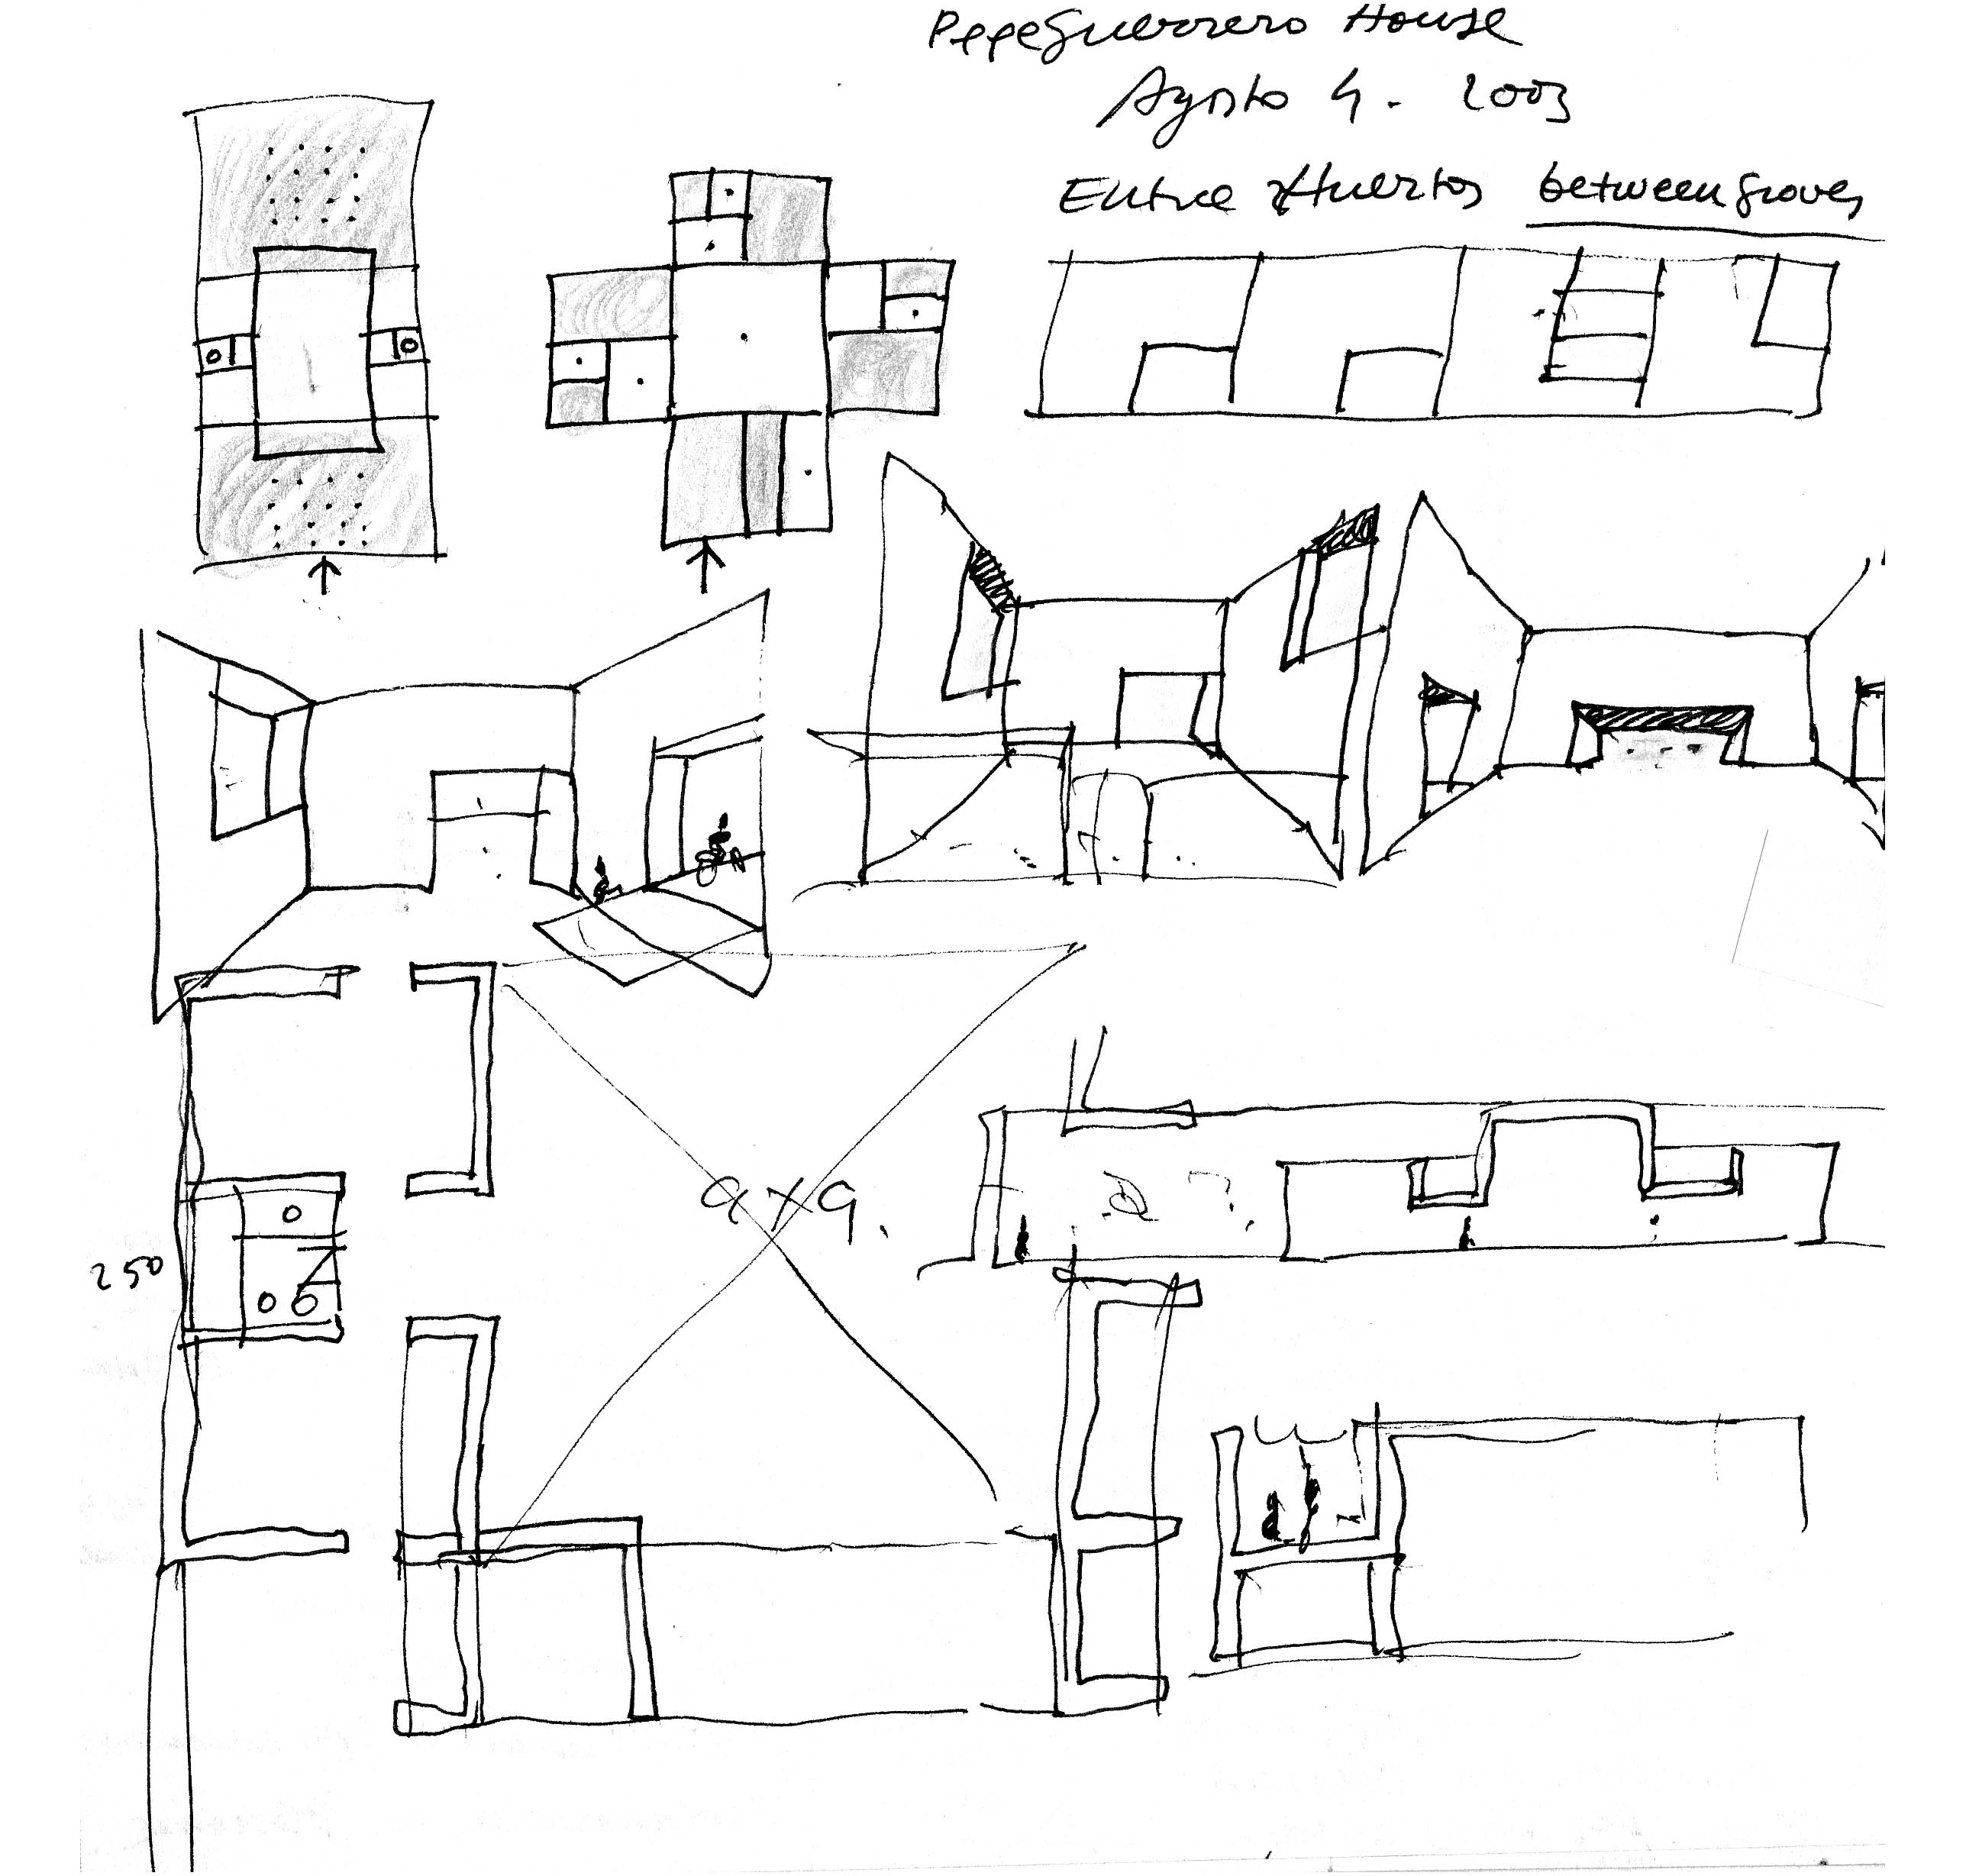 Pepe Guerrero House
Agosto 4. 2003
Entre Huertos between groves
9x9.
250